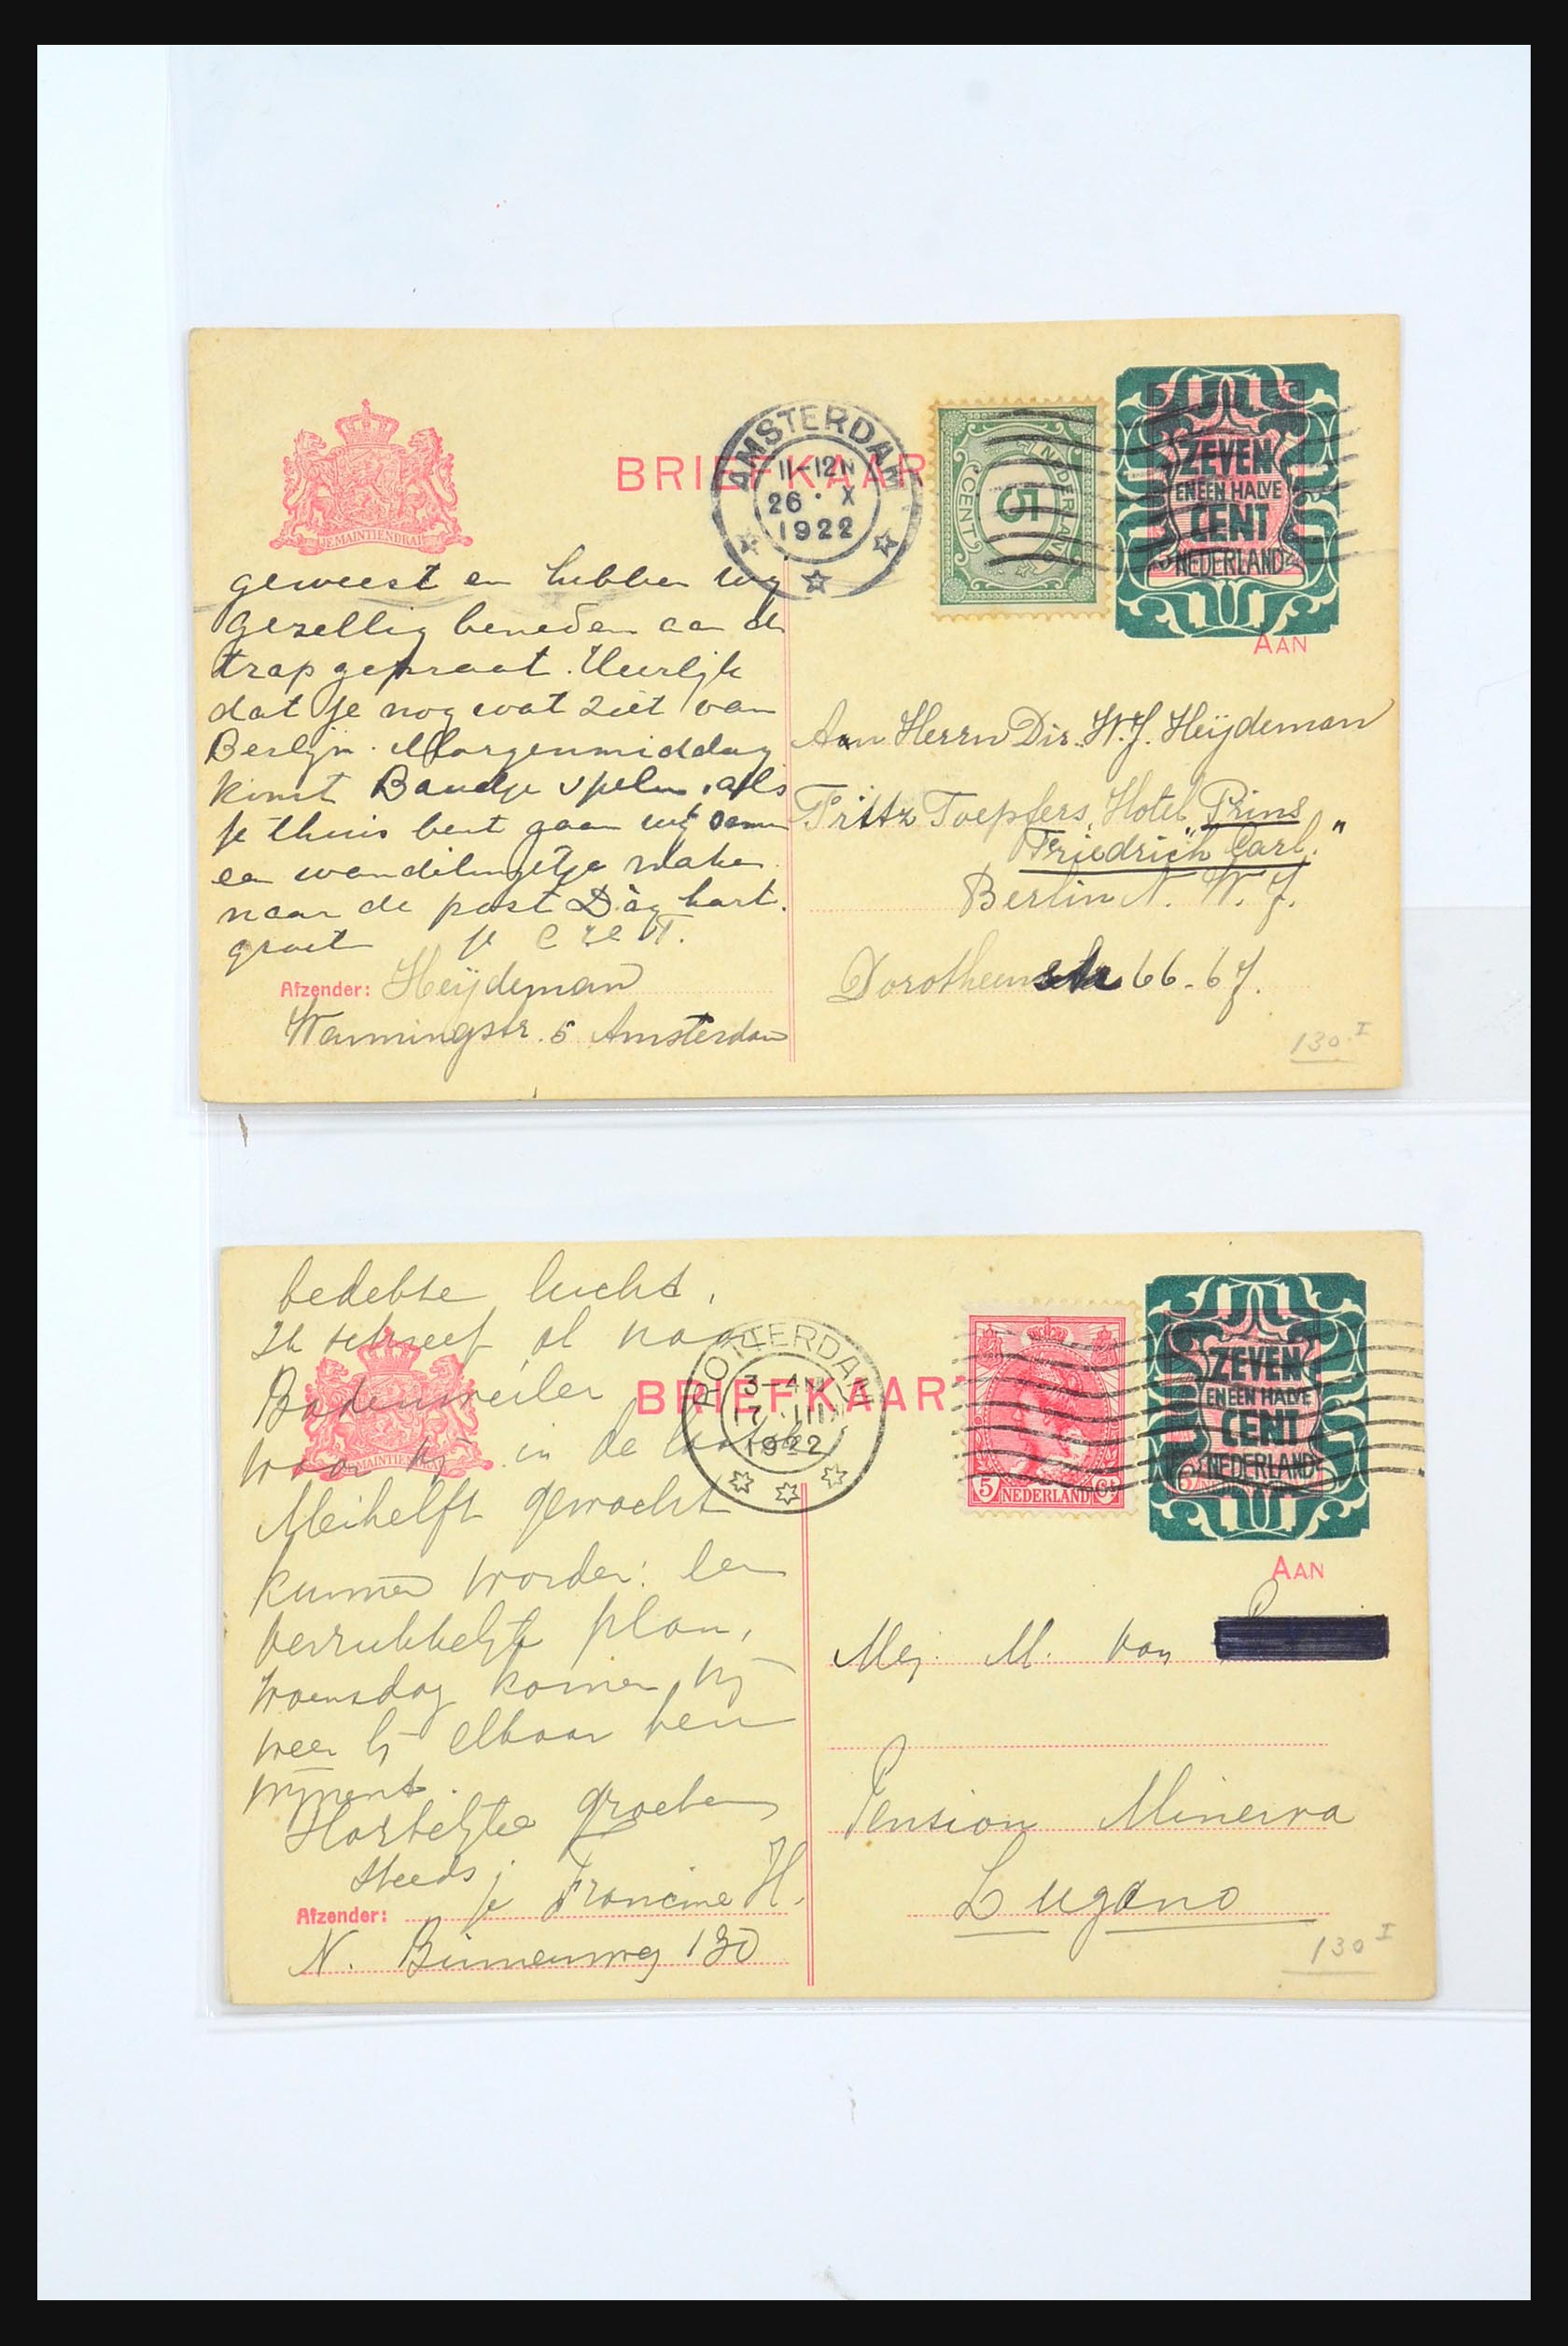 JE MAINTIENDRAI
BRIEFKAAR
AMSTERDAM
11-12N
26 X
1922
NEDERLAND
5
CENT
ZEVEN
EN EEN HALVE
CENT
NEDERLAND
AAN
geweest en hebben nog
gezellig beneden aan de
trap gepraat. Heerlijk
dat je nog wat ziet van
Berlijn. Morgenmiddag
komt Baudje spelen, als
je thuis bent gaan wij samen
een wandelingetje maken
naar de post Dàg hart.
groet je
Aan Herrn Dir. W.J. Heijdeman
Fritz Toepfers, Hotel Prins
"Friedrich Carl."
Berlin N. W. 7.
Dorotheenstr 66-67.
Afzender: Heijdeman
Wanningstr. 5 Amsterdam
130 I
bedekte lucht.
Ik schreef al naar
Badenweiler
waar wij in de laatste
Meihelft gewacht
kunnen worden: een
verrukkelijk plan,
Woensdag komen wij
weer bij elkaar ten
Hartelijke groeten
steeds je Francine H.
Afzender:
N. Binnenweg 130
JE MAINTIENDRAI
BRIEFKAART
ROTTERDAM
3-4N
17 III
1922
5 NEDERLAND Ct
ZEVEN
EN EEN HALVE
CENT
NEDERLAND
AAN
Mej. M. van
Pension Minerva
Lugano
130 I